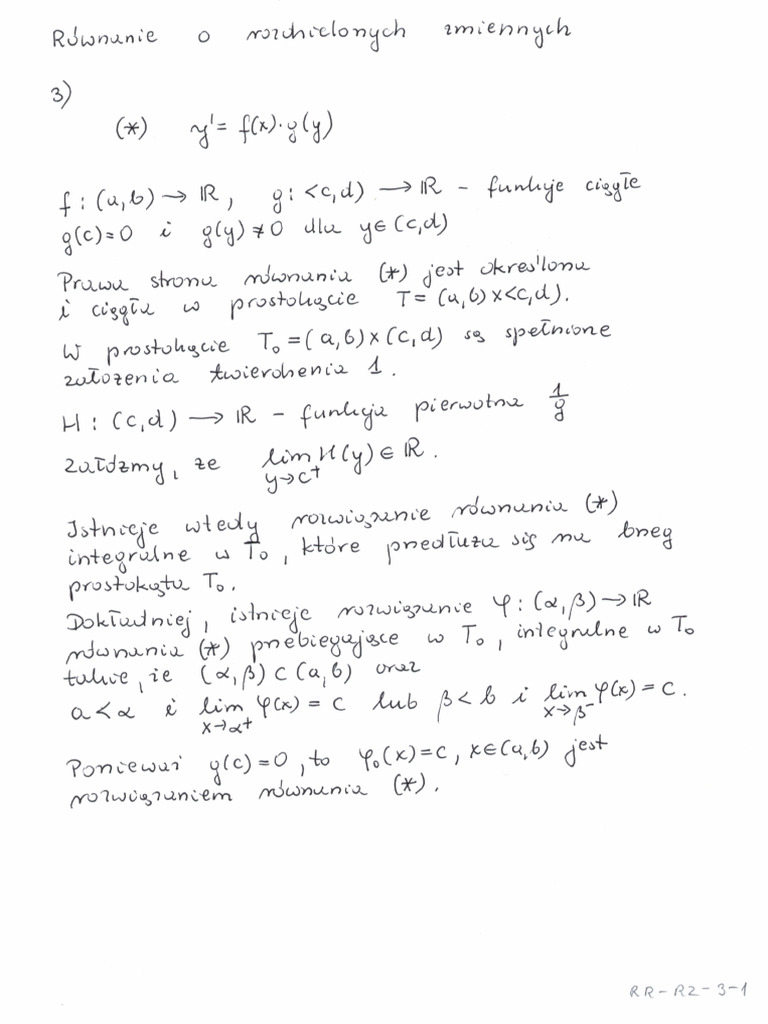 Równanie o rozdzielonych zmiennych
3)
(*) y' = f(x)·g(y)
f : (a,b) → ℝ, g : <c,d) → ℝ – funkcje ciągłe
g(c)=0 i g(y)≠0 dla y∈(c,d)
Prawa strona równania (*) jest określona
i ciągła w prostokącie T = (a,b)×<c,d).
W prostokącie T₀ = (a,b)×(c,d) są spełnione
założenia twierdzenia 1.
H : (c,d) → ℝ – funkcja pierwotna 1/g
Załóżmy, że lim H(y) ∈ ℝ.
y→c⁺
Istnieje wtedy rozwiązanie równania (*)
integralne w T₀, które przedłuża się na brzeg
prostokąta T₀.
Dokładniej, istnieje rozwiązanie φ : (α,β) → ℝ
równania (*) przebiegające w T₀, integralne w T₀
takie, że (α,β) ⊂ (a,b) oraz
a < α i lim φ(x) = c lub β < b i lim φ(x) = c.
x→α⁺ x→β⁻
Ponieważ g(c)=0, to φ₀(x)=c, x∈(a,b) jest
rozwiązaniem równania (*).
RR-R2-3-1